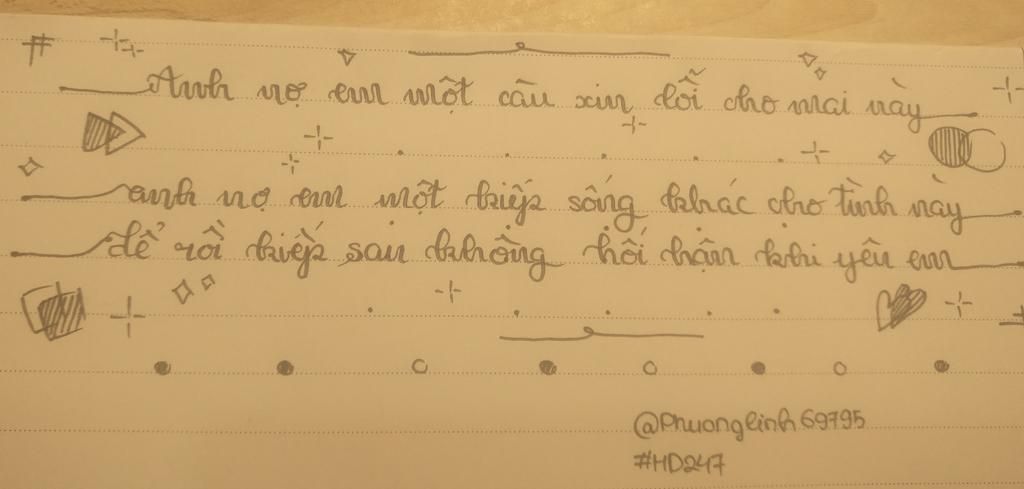 Anh nợ em một câu xin lỗi cho mai này
anh nợ em một kiếp sống khác cho tình này
để rồi kiếp sau không hối hận khi yêu em
@Phuonglinh69795
#HD247